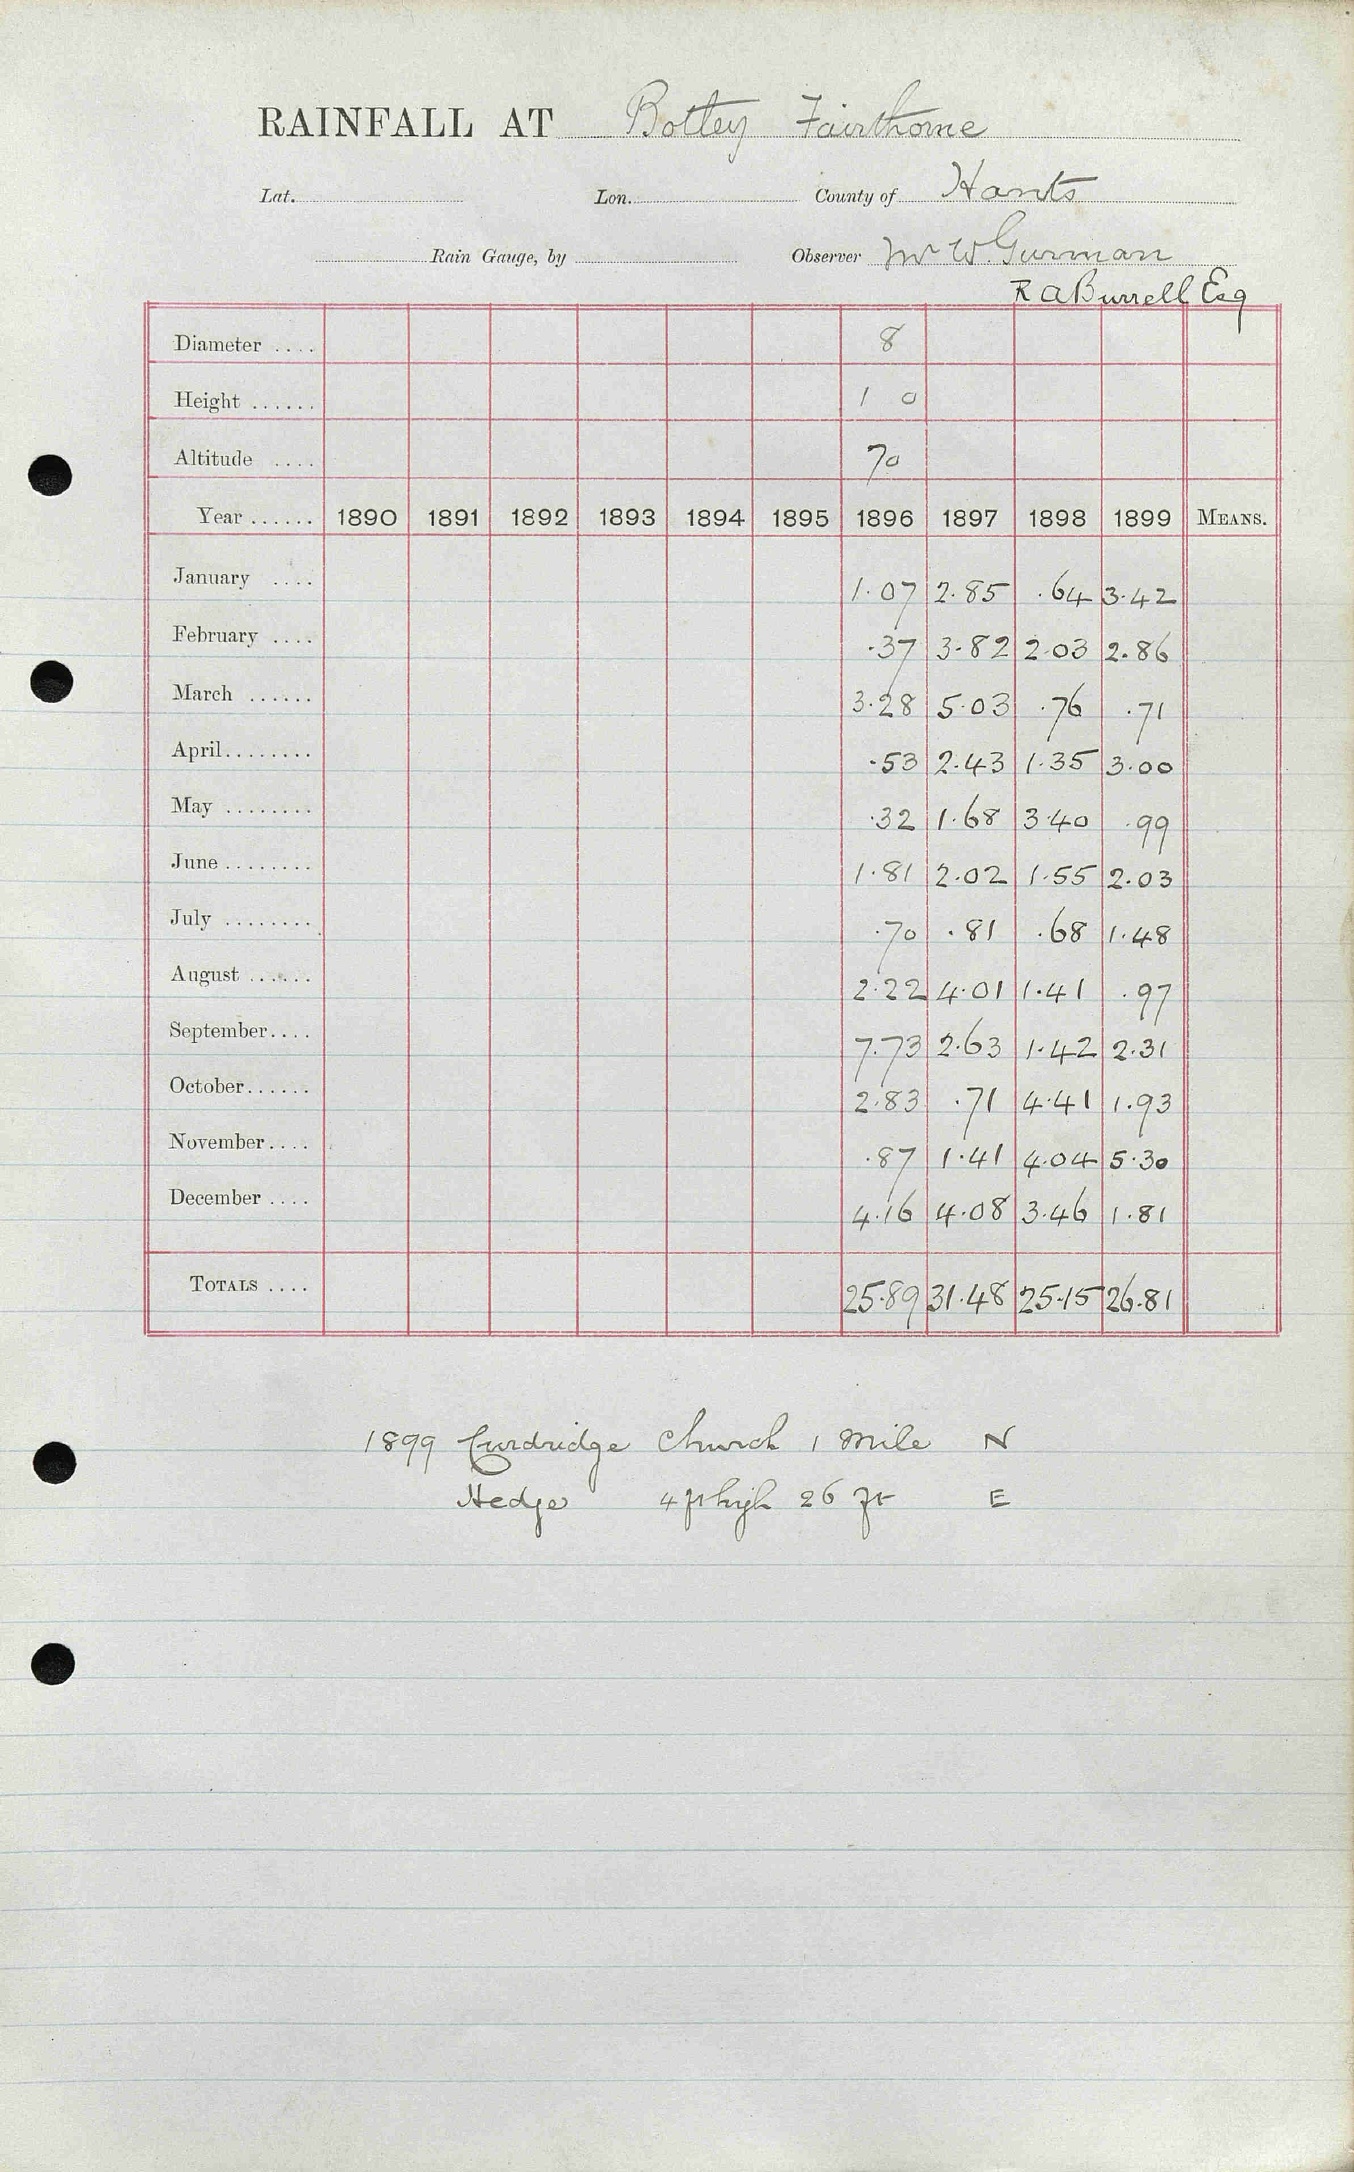 RAINFALL AT Botley Fairthorne
Lat. Lon. County of Hants
Rain Gauge, by Observer Mr W. Gurman
R A Burrell Esq
Diameter .... 8
Height ...... 1 0
Altitude .... 70
Year ...... 1890 1891 1892 1893 1894 1895 1896 1897 1898 1899 MEANS.
January .... 1.07 2.85 .64 3.42
February .... .37 3.82 2.03 2.86
March ...... 3.28 5.03 .76 .71
April........ .53 2.43 1.35 3.00
May ........ .32 1.68 3.40 .99
June ........ 1.81 2.02 1.55 2.03
July ........ .70 .81 .68 1.48
August ...... 2.22 4.01 1.41 .97
September.... 7.73 2.63 1.42 2.31
October...... 2.83 .71 4.41 1.93
November.... .87 1.41 4.04 5.30
December .... 4.16 4.08 3.46 1.81
TOTALS .... 25.89 31.48 25.15 26.81
1899 Curdridge Church 1 mile N
Hedge 4 ft high 26 ft E